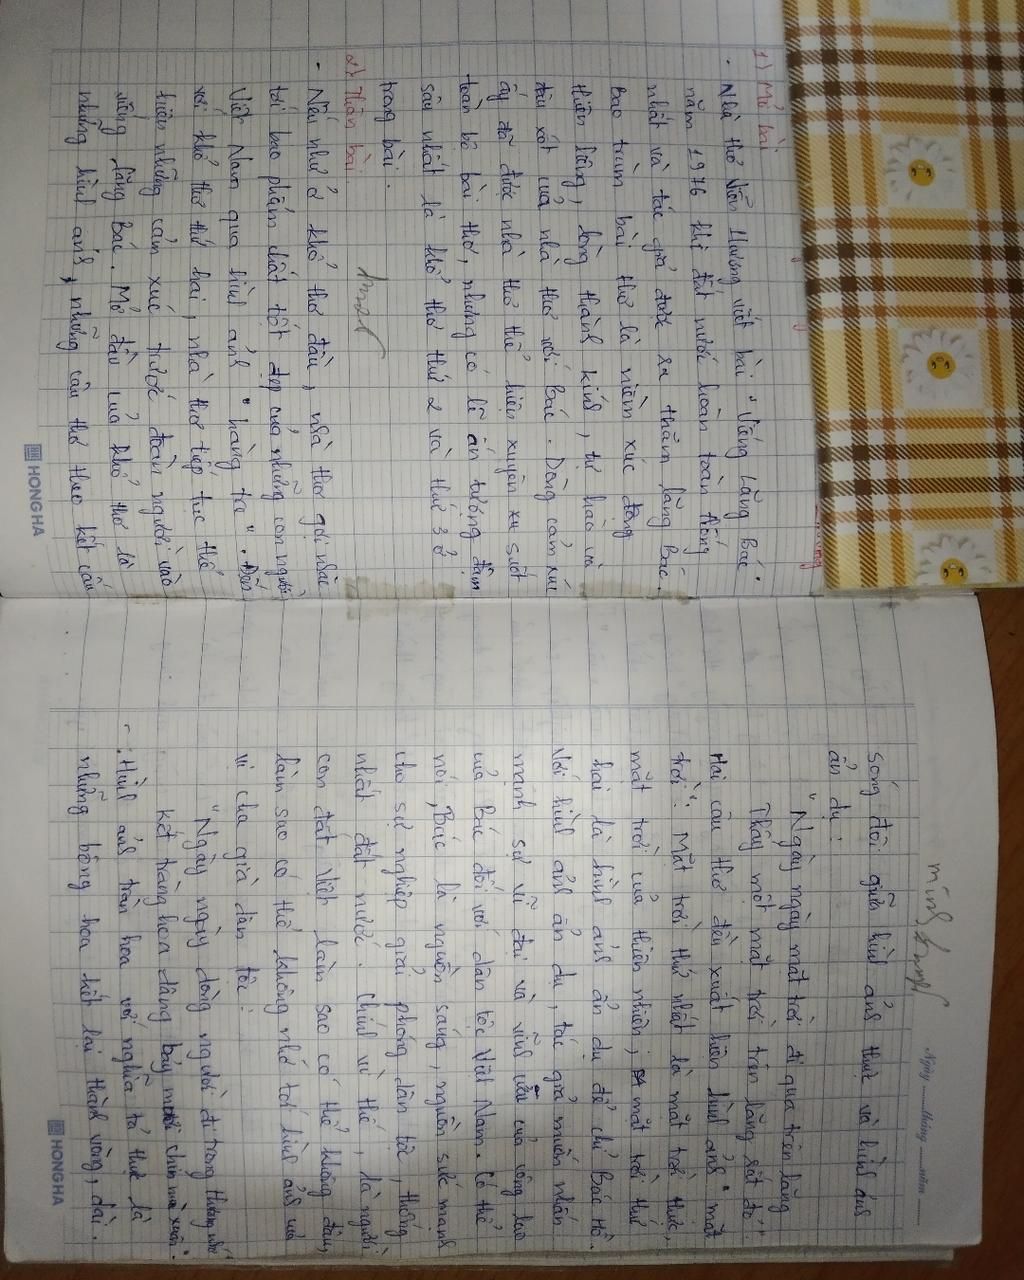 1) Mở bài
- Nhà thơ Viễn Phương viết bài "Viếng Lăng Bác"
năm 1976 khi đất nước hoàn toàn thống
nhất và tác giả được ra thăm lăng Bác.
Bao trùm bài thơ là niềm xúc động
thiêng liêng, lòng thành kính, tự hào và
đau xót của nhà thơ với Bác. Dòng cảm xúc
ấy đã được nhà thơ thể hiện xuyên xu suốt
toàn bộ bài thơ, nhưng có lẽ ấn tượng đậm
sâu nhất là khổ thơ thứ 2 và thứ 3 ở
trong bài.
2) Thân bài
- Nếu như ở khổ thơ đầu, nhà thơ gợi nhắc
tới bao phẩm chất tốt đẹp của những con người
Việt Nam qua hình ảnh "hàng tre". Đến
với khổ thơ thứ hai, nhà thơ tiếp tục thể
hiện những cảm xúc trước đoàn người vào
viếng lăng Bác. Mở đầu của khổ thơ là
những hình ảnh, những câu thơ theo kết cấu
Ngày tháng năm
sóng đôi giữa hình ảnh thực và hình ảnh
ẩn dụ:
"Ngày ngày mặt trời đi qua trên lăng
Thấy một mặt trời trên lăng rất đỏ"
Hai câu thơ đều xuất hiện hình ảnh "mặt
trời". Mặt trời thứ nhất là mặt trời thực,
mặt trời của thiên nhiên; mặt trời thứ
hai là hình ảnh ẩn dụ để chỉ Bác Hồ.
Với hình ảnh ẩn dụ, tác giả muốn nhấn
mạnh sự vĩ đại và vĩnh cửu của công lao
của Bác đối với dân tộc Việt Nam. Có thể
nói, Bác là nguồn sáng, nguồn sức mạnh
cho sự nghiệp giải phóng dân tộc, thống
nhất đất nước. Chính vì thế, là người
con đất Việt làm sao có thể không đau,
làm sao có thể không nhớ tới hình ảnh của
vị cha già dân tộc:
"Ngày ngày dòng người đi trong thương nhớ
Kết tràng hoa dâng bảy mươi chín mùa xuân".
- Hình ảnh tràn hoa với nghĩa tả thực là
những bông hoa kết lại thành vòng, dài.
HONG HA
HONG HA